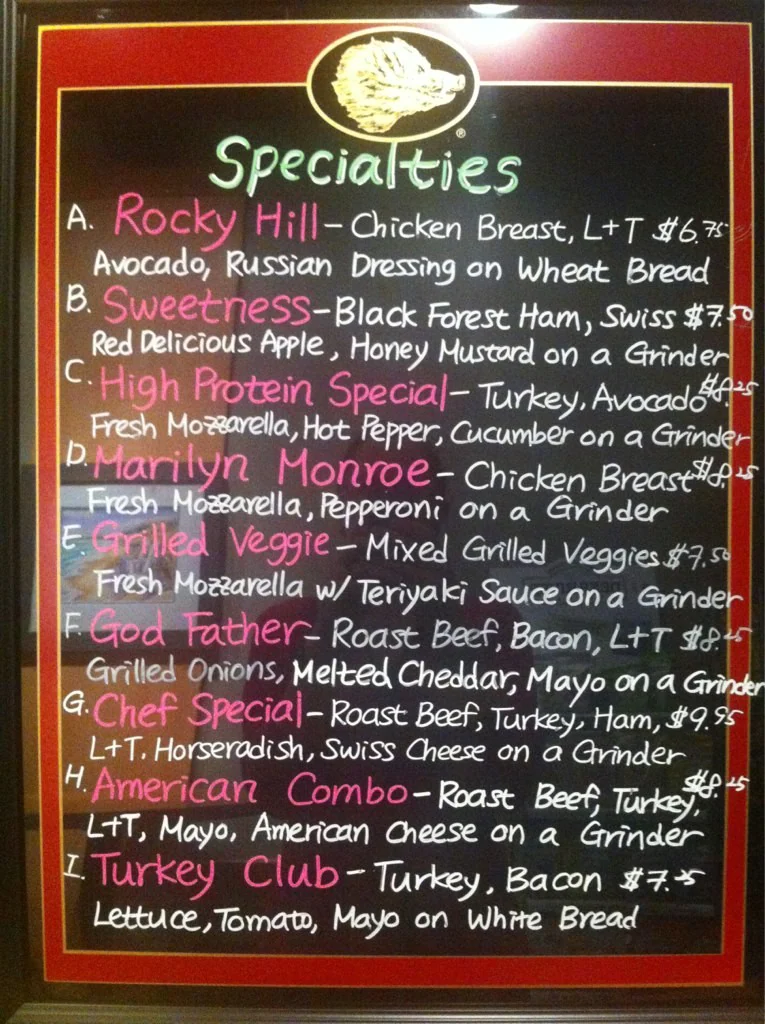 Specialties
A. Rocky Hill - Chicken Breast, L+T $6.75
Avocado, Russian Dressing on Wheat Bread
B. Sweetness - Black Forest Ham, Swiss $7.50
Red Delicious Apple, Honey Mustard on a Grinder
C. High Protein Special - Turkey, Avocado $8.25
Fresh Mozzarella, Hot Pepper, Cucumber on a Grinder
D. Marilyn Monroe - Chicken Breast $8.25
Fresh Mozzarella, Pepperoni on a Grinder
E. Grilled Veggie - Mixed Grilled Veggies $7.50
Fresh Mozzarella w/ Teriyaki Sauce on a Grinder
F. God Father - Roast Beef, Bacon, L+T $8.25
Grilled Onions, Melted Cheddar, Mayo on a Grinder
G. Chef Special - Roast Beef, Turkey, Ham, $9.95
L+T, Horseradish, Swiss Cheese on a Grinder
H. American Combo - Roast Beef, Turkey, $8.25
L+T, Mayo, American Cheese on a Grinder
I. Turkey Club - Turkey, Bacon $7.25
Lettuce, Tomato, Mayo on White Bread